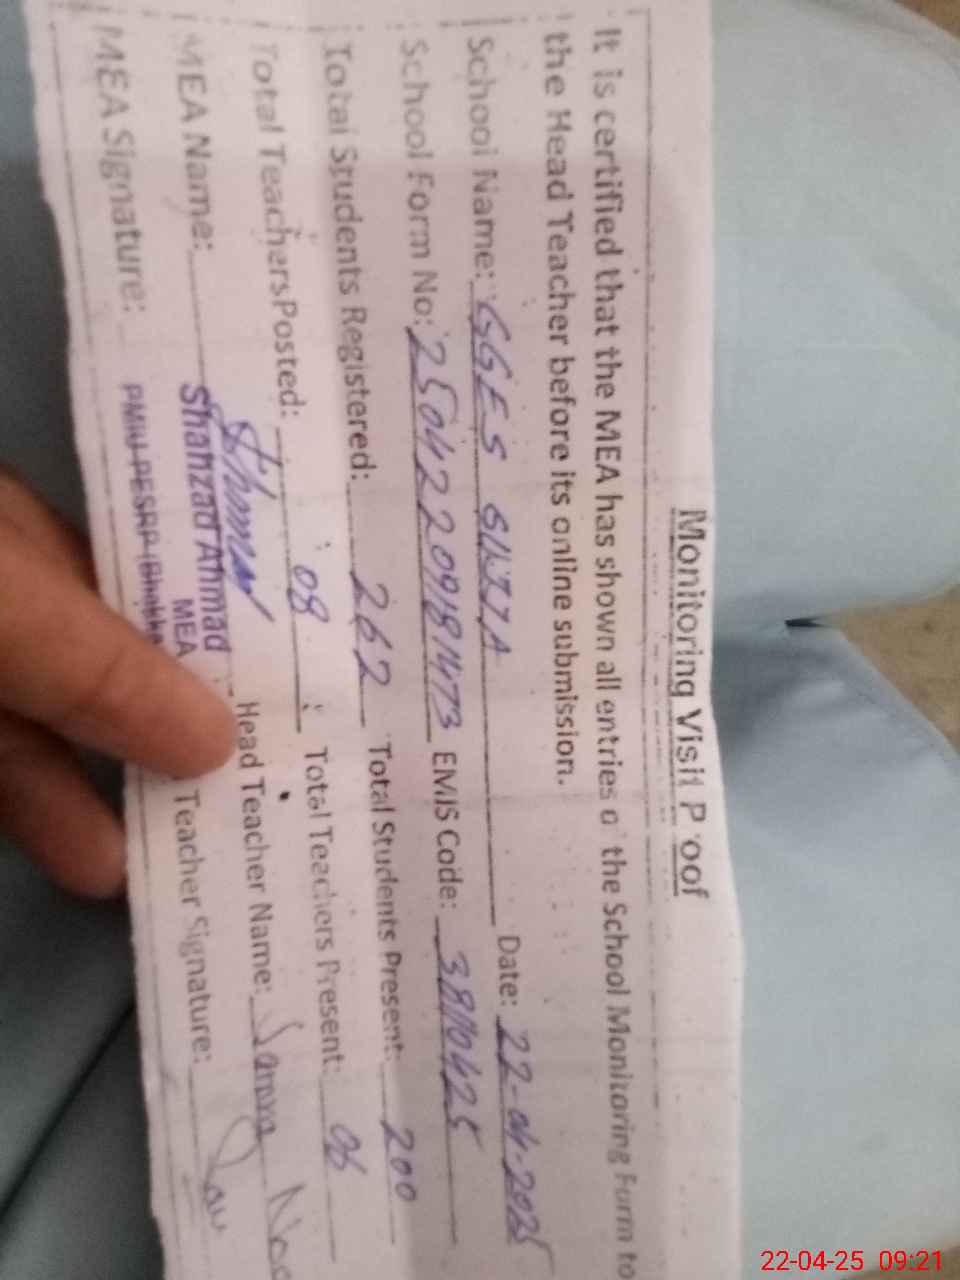 Monitoring Visit P oof
It is certified that the MEA has shown all entries o the School Monitoring Form to
the Head Teacher before its online submission.
School Name: GGES Date: 22-04-2025
School Form No: 25042209181473 EMIS Code: 38110425
Total Students Registered: 262 Total Students Present: 200
Total Teachers Posted: 08 Total Teachers Present: 06
MEA Name: Shahzad Ahmad Head Teacher Name:
MEA
MEA Signature: PMIU-PESRP (Bhakka Teacher Signature:
22-04-25 09:21